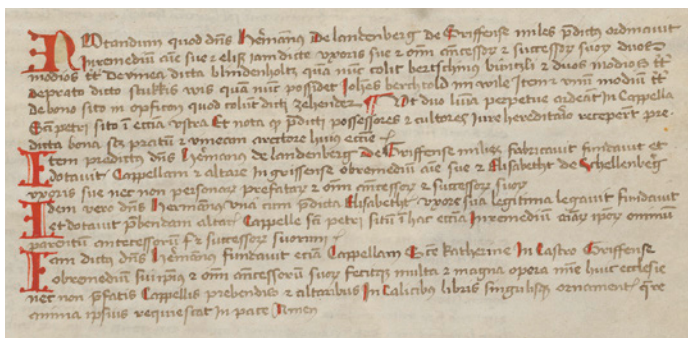 Notandum quod dns hermans de landenberg de Griffense miles pdictus ordinavit
in remediu aie sue et elisz jam dicte uxoris sue et omm ancessor et successor suor duos
modios tt de vinea dicta blindenholtz qua nunc colit bertschinus et duos modios tt
de prato dicto wis qua nunc possidet Johes berchtold im wile Item et unu modiu tt
de bono sito in opficon quod colunt dicti zehender Ut duo lumina perpetue ardeant in Cappella
Sci petri sito i eccia vstra Et nota q pdicti possessores et cultores Jure hereditario receperunt pre
dicta bona scz pratu et vineam a rectore huius eccie
Item predictus dns hermans de landenberg de Griffense miles fabricavit fundavit et
dotavit Cappellam et altare in griffense ob remediu aie sue et Elisabeth de Schellenberg
uxoris sue nec non personar prefatar et omm ancessor et successor suor
Idem vero dns hermans una cum pdicta Elisabeth uxore sua legitima legavit fundavit
et dotavit pbendam altaris Cappelle sci petri situ i hac eccia In remediu aiar ipor omniu
parentu antecessoru et successor suorum
Jam dictus dns hermans fundavit eciam Cappellam Sce Katherine In Castro Griffense
ob remediu sui ipius et omm ancessoru suor fecitq multa et magna opera huic ecclesie
nec non pfatis Cappellis prebendis et altaribus In Calicibus libris singulisq ornamentis
anima ipsius requiescat in pace Amen